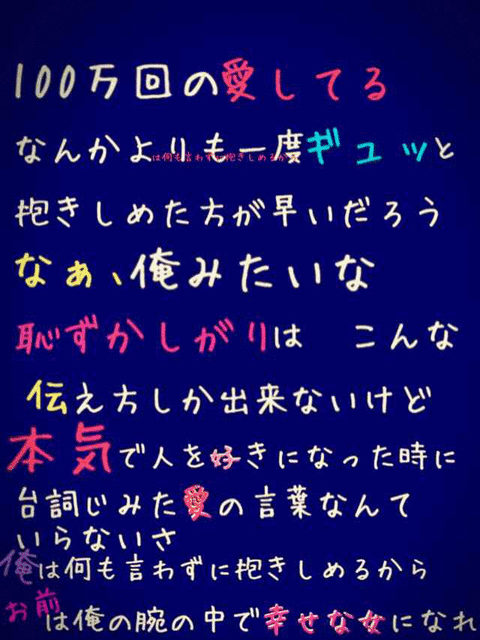 100万回の愛してる
なんかよりも一度ギュッと
は何も言わずに抱きしめるから
抱きしめた方が早いだろう
なぁ、俺みたいな
恥ずかしがりは こんな
伝え方しか出来ないけど
本気で人を好きになった時に
台詞じみた愛の言葉なんて
いらないさ
俺は何も言わずに抱きしめるから
お前は俺の腕の中で幸せな女になれ